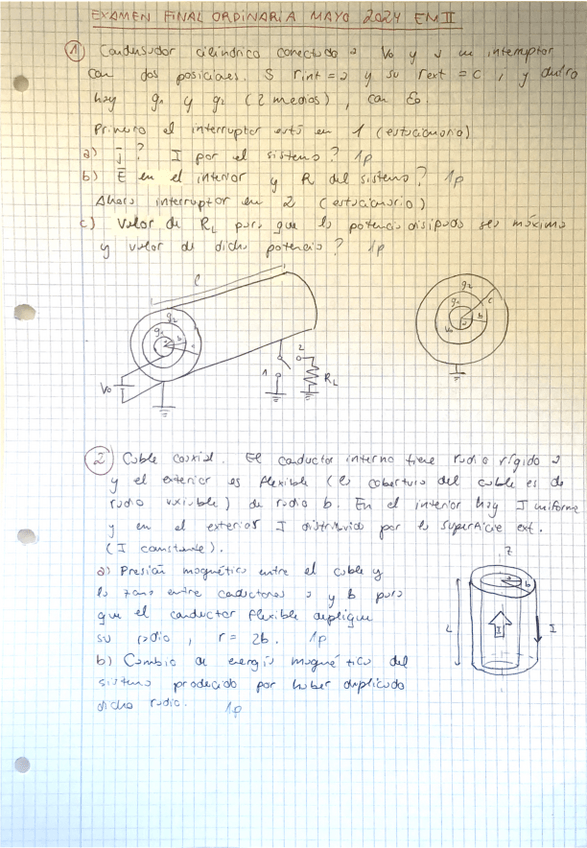 EXAMEN FINAL ORDINARIA MAYO 2024 EM II
1 Condensador cilíndrico conectado a V0 y a un interruptor
con dos posiciones. S rint = a y su rext = c, y dentro
hay g1 y g2 (2 medios), con ε0.
Primero el interruptor está en 1 (estacionario)
a) j̄? I por el sistema? 1p
b) Ē en el interior y R del sistema? 1p
Ahora interruptor en 2 (estacionario)
c) Valor de RL para que la potencia disipada sea máxima
y valor de dicha potencia? 1p
l
g2
g1
a
b
c
V0
1
2
RL
g2
g1
c
b
V0
2 Cable coaxial. El conductor interno tiene radio rígido a
y el exterior es flexible (la cobertura del cable es de
radio variable) de radio b. En el interior hay J uniforme
y en el exterior I distribuido por la superficie ext.
(I constante).
a) Presión magnética entre el cable y
la zona entre conductores a y b para
que el conductor flexible duplique
su radio, r = 2b. 1p
b) Cambio de energía magnética del
sistema producido por haber duplicado
dicho radio. 1p
z
a
b
L
I
I